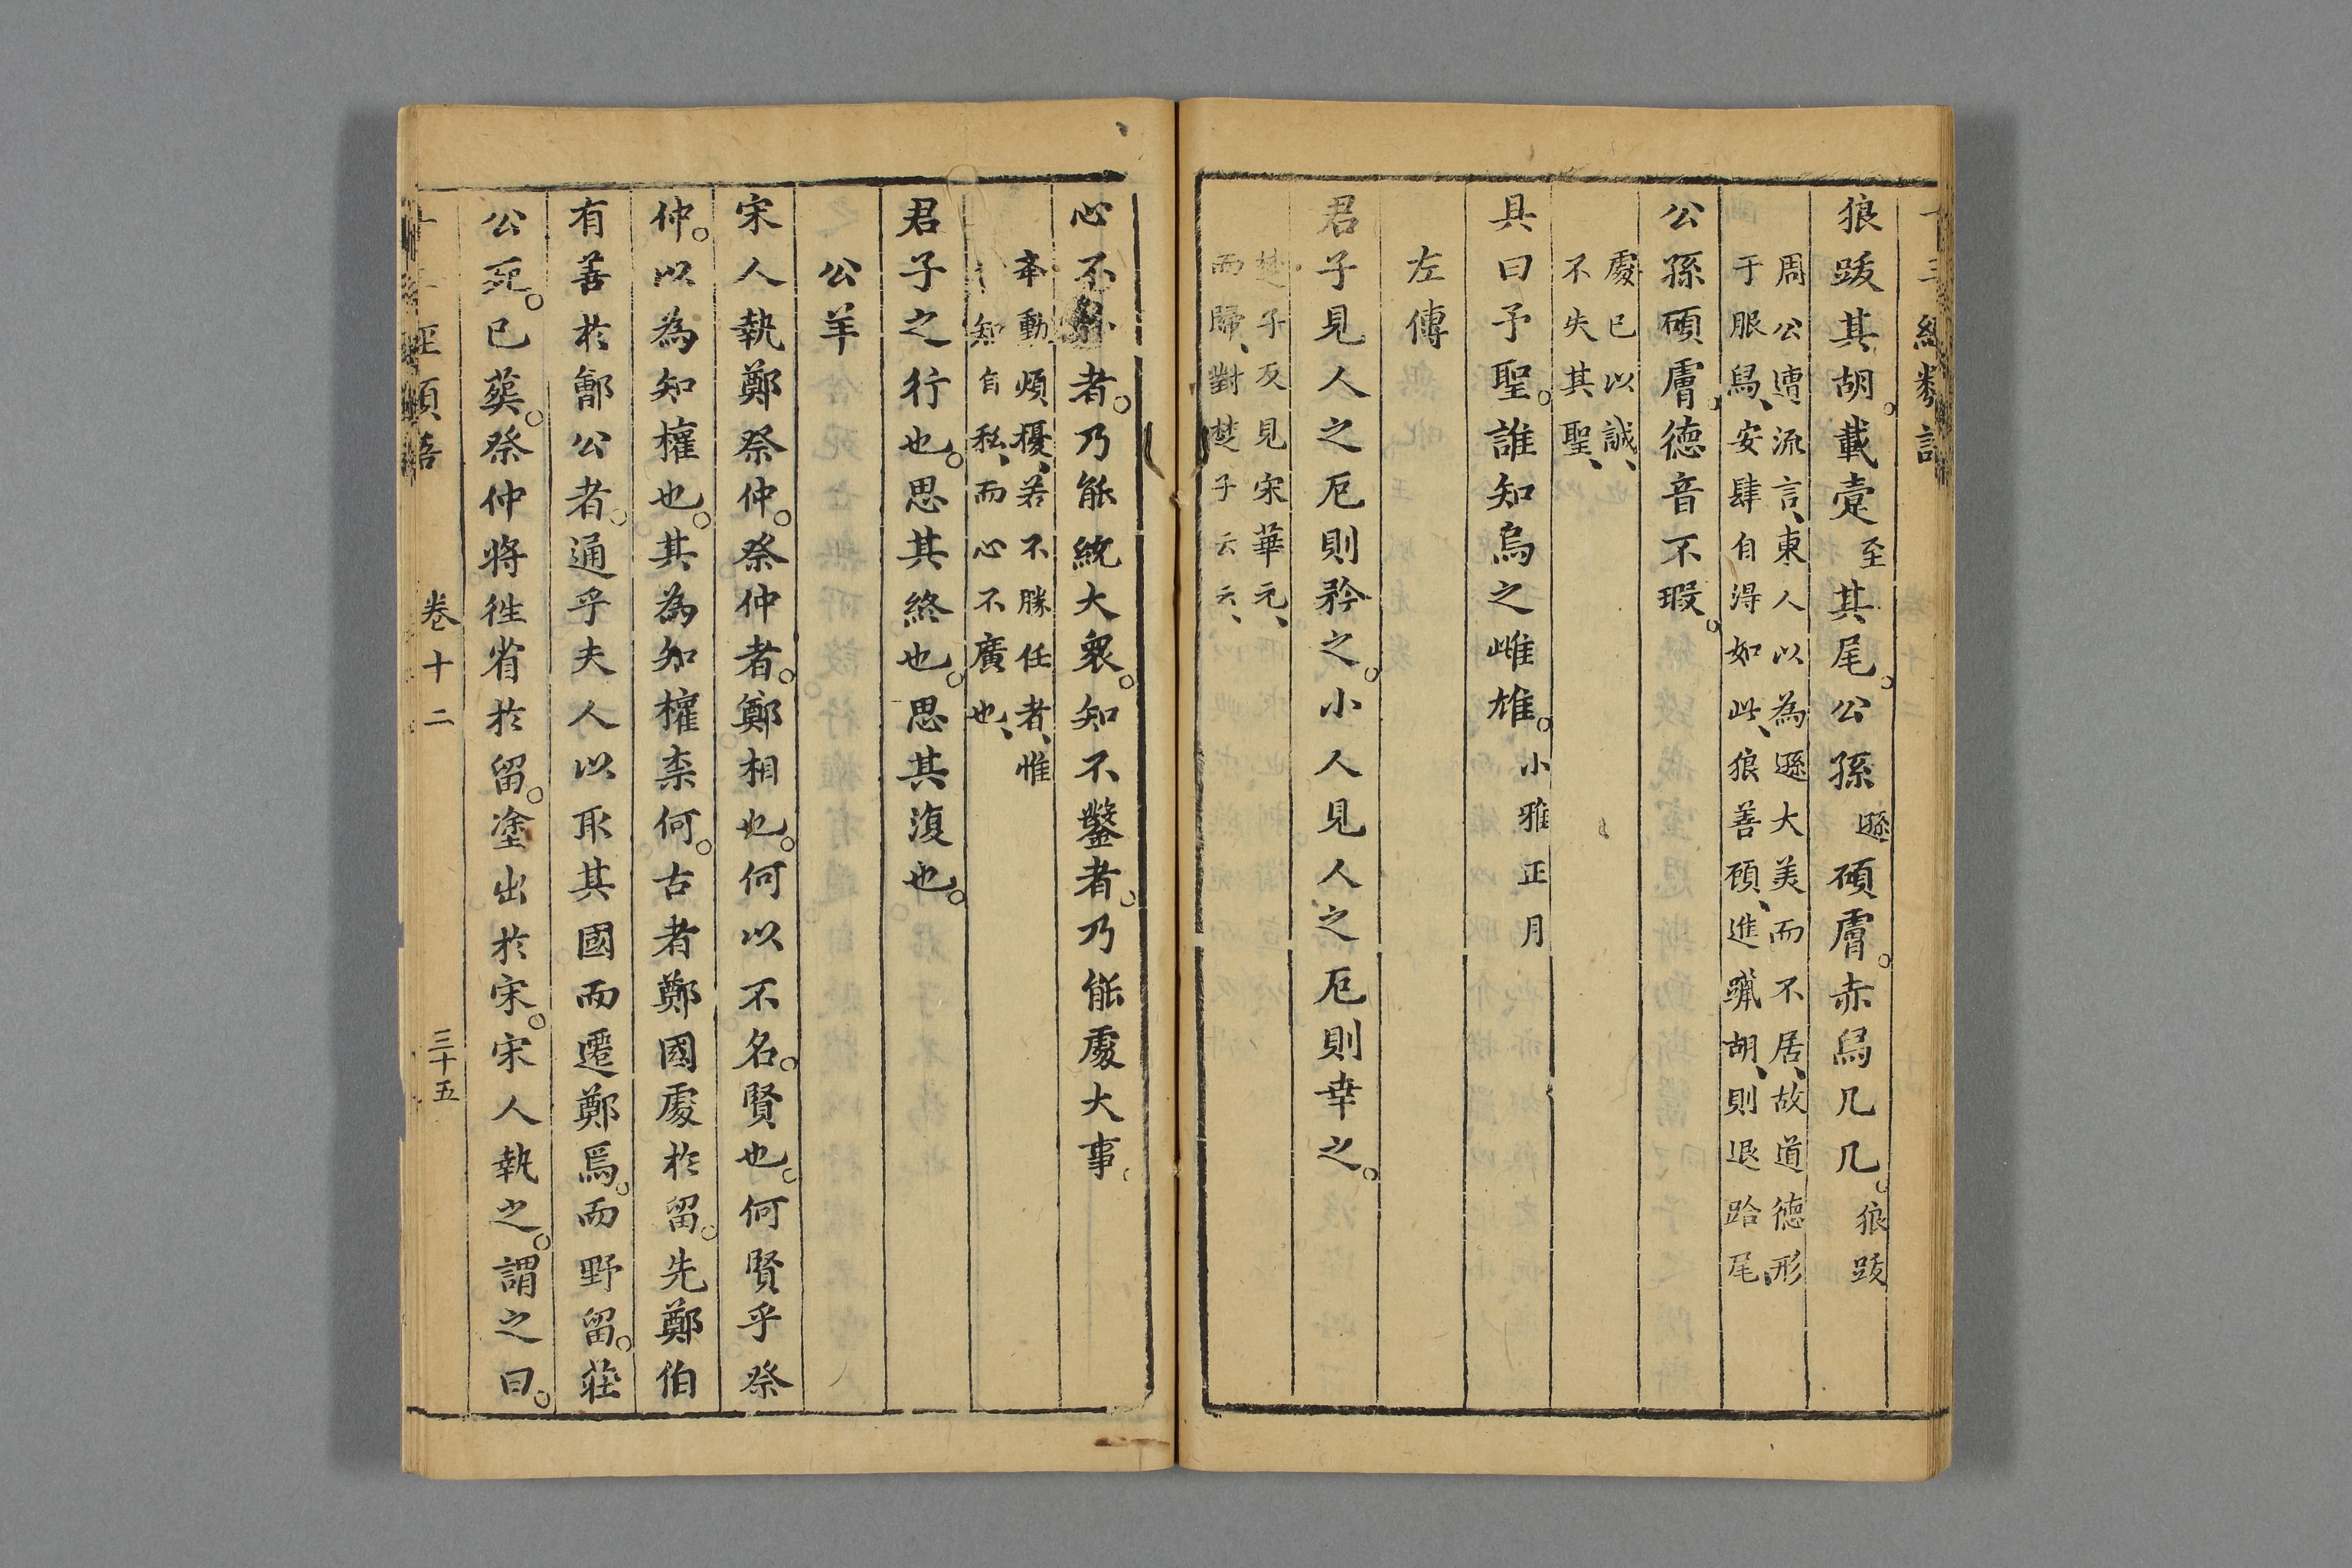 狼跋其胡。載疐至其尾。公孫遜碩膚。赤舄几几。狼跋
周公遭流言、東人以為遜大美而不居、故道德形
于服舄、安肆自得如此、狼善顧、進躐胡、則退跲尾、
公孫碩膚。德音不瑕。
處己以誠、
不失其聖、
具曰予聖。誰知烏之雌雄。小雅正月
左傳
君子見人之厄則矜之。小人見人之厄則幸之。
楚子反見宋華元、
而歸、對楚子云云、
心不 者。乃能統大衆。知不鑿者。乃能處大事。
本動煩擾、若不勝任者、惟
知自私、而心不廣也、
君子之行也。思其終也。思其復也。
公羊
宋人執鄭祭仲。祭仲者。鄭相也。何以不名。賢也。何賢乎祭
仲。以為知權也。其為知權柰何。古者鄭國處於留。先鄭伯
有善於鄶公者。通乎夫人以取其國而遷鄭焉。而野留。莊
公死。已葬。祭仲將徃省於留。塗出於宋。宋人執之。謂之曰。
卷十二
三十五